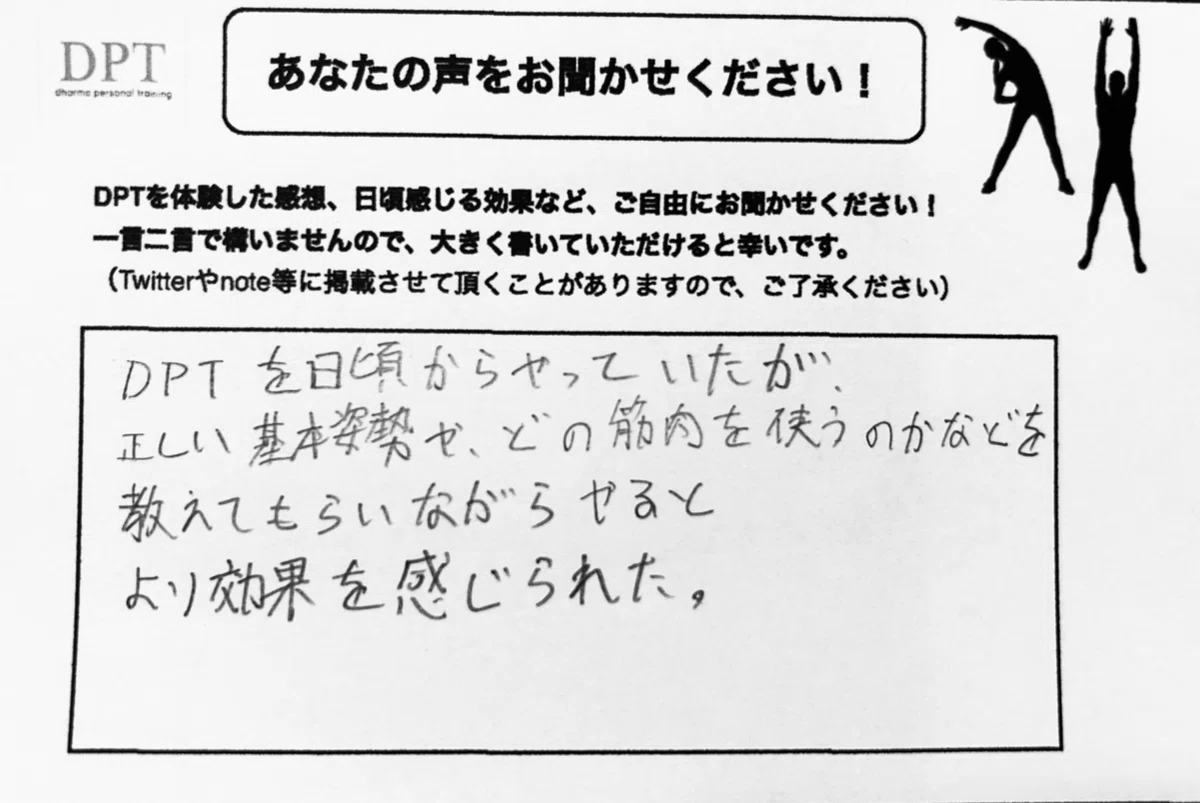 DPT
dharma personal training
あなたの声をお聞かせください！
DPTを体験した感想、日頃感じる効果など、ご自由にお聞かせください！
一言二言で構いませんので、大きく書いていただけると幸いです。
（Twitterやnote等に掲載させて頂くことがありますので、ご了承ください）
DPTを日頃からやっていたが、
正しい基本姿勢や、どの筋肉を使うのかなどを
教えてもらいながらやると
より効果を感じられた。